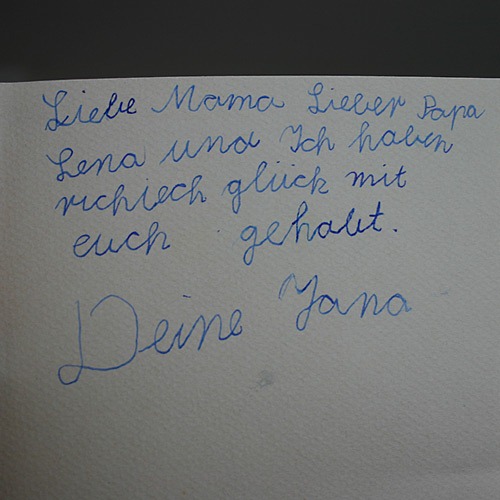 Liebe Mama Lieber Papa
Lena und Ich haben
richiech glück mit
euch gehabt.
Deine Jana